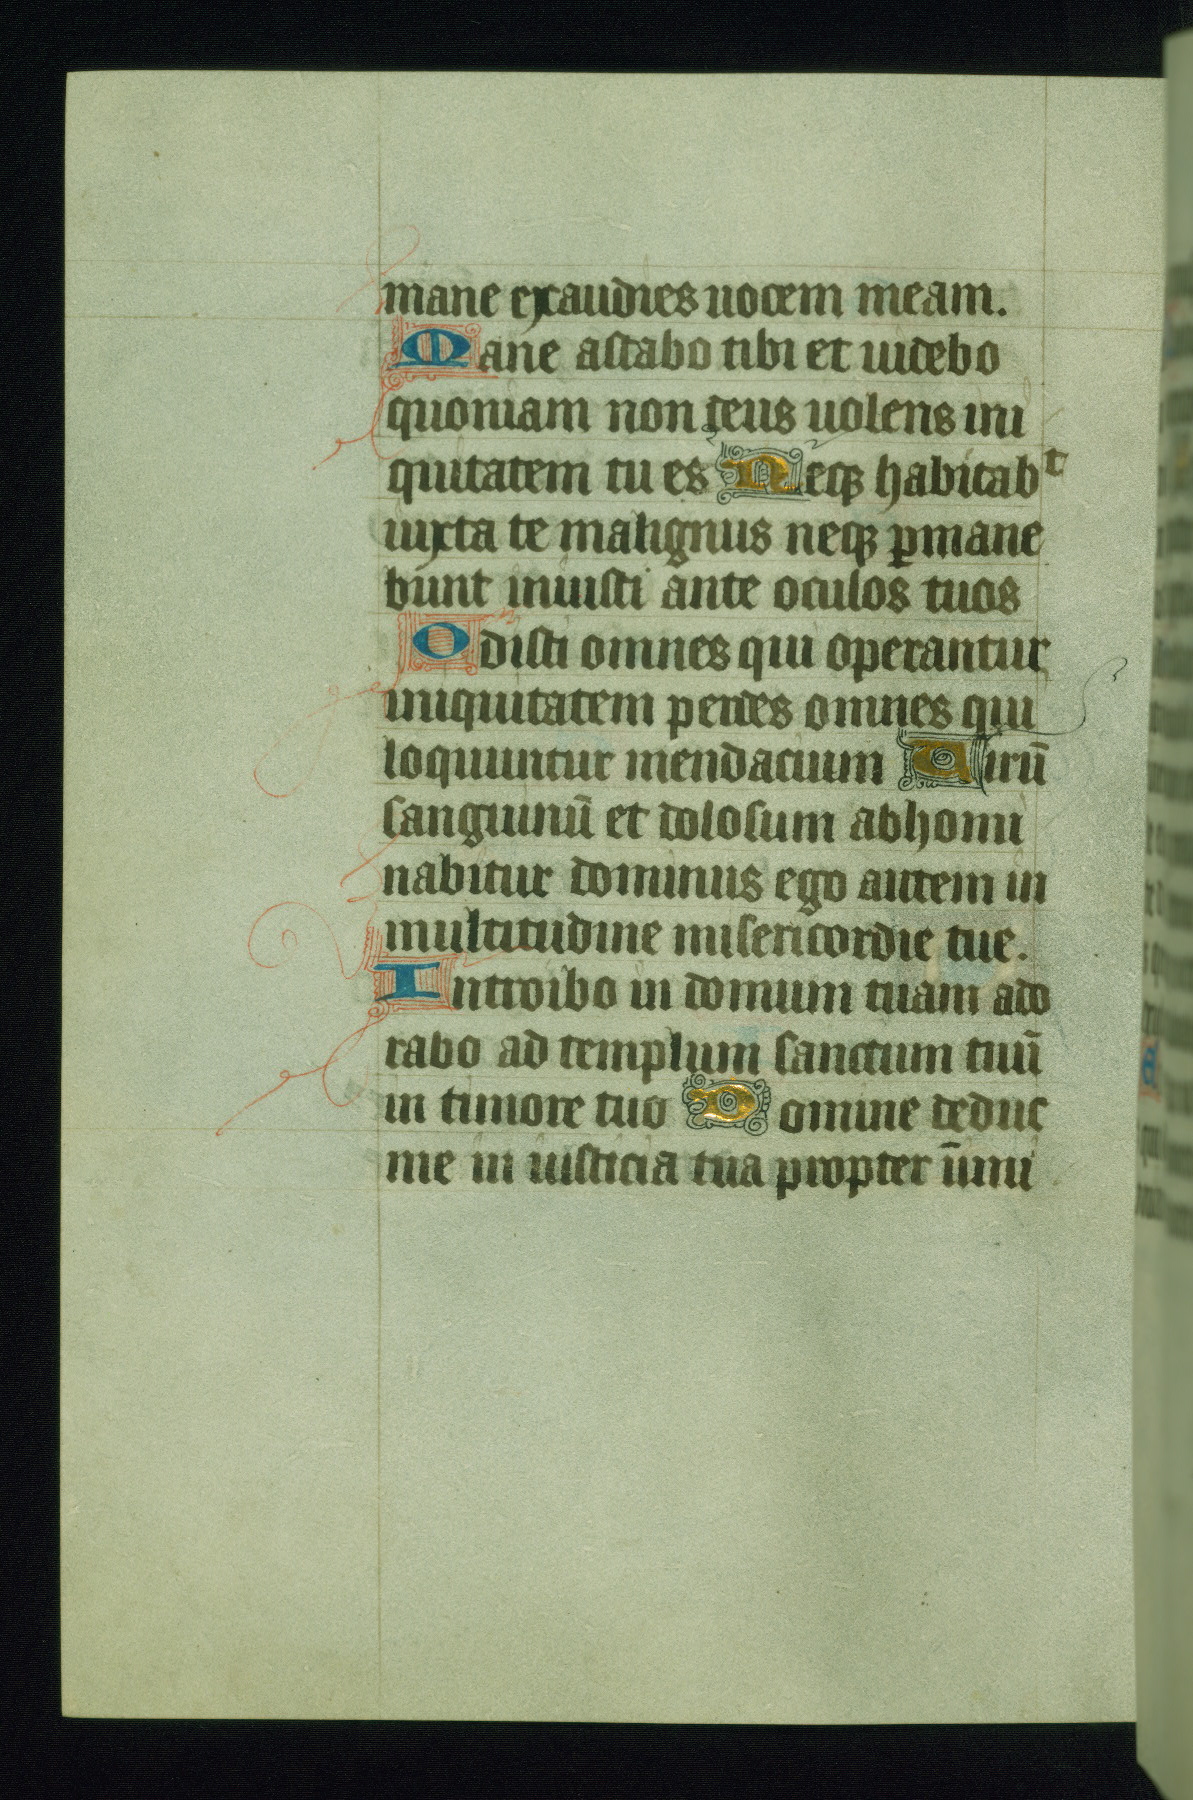 mane exaudies uocem meam.
Mane astabo tibi et uidebo
quoniam non deus uolens ini
quitatem tu es Neqꝫ habitabᵗ
iuxta te malignus neqꝫ ꝑmane
bunt iniusti ante oculos tuos
Odisti omnes qui operantur
iniquitatem perdes omnes qui
loquuntur mendacium Uirū
sanguinū et dolosum abhomi
nabitur dominus ego autem in
multitudine misericordie tue.
Introibo in domum tuam ado
rabo ad templum sanctum tuū
in timore tuo Domine deduc
me in iusticia tua propter īimi